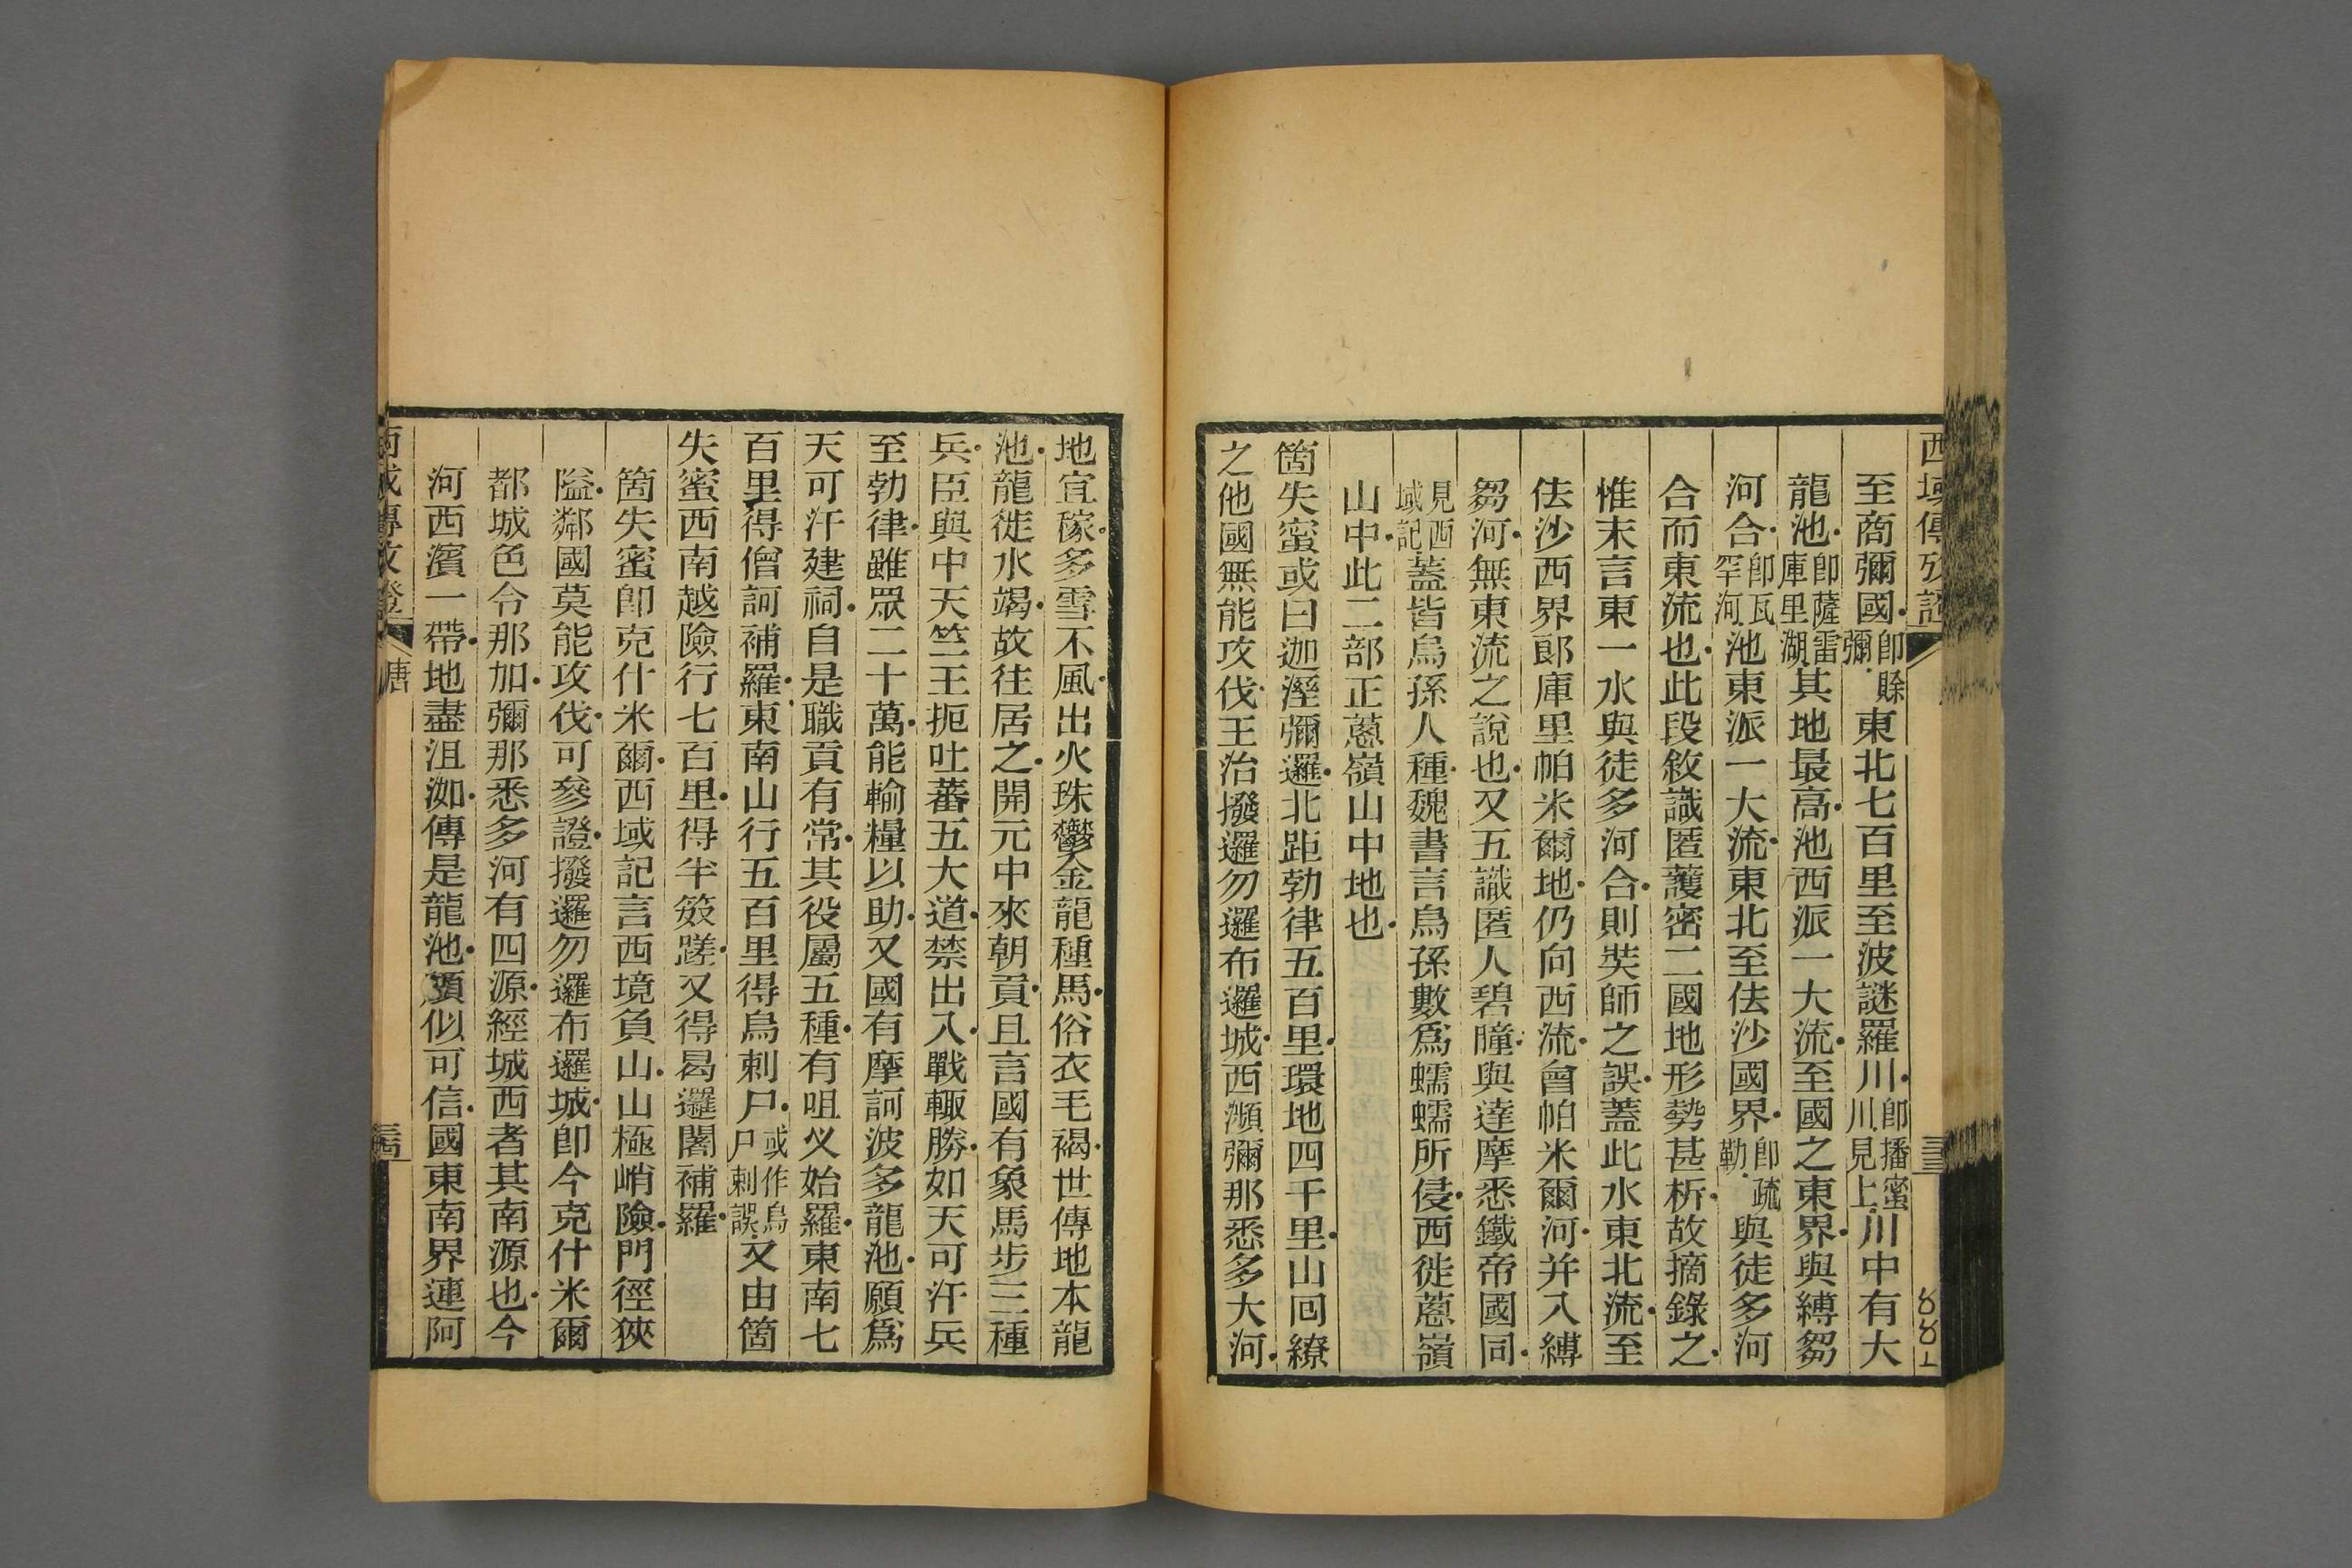 西域傳攷證
至商彌國卽賒彌東北七百里至波謎羅川卽播蜜川見上川中有大
龍池卽薩雷庫里湖其地最高池西派一大流至國之東界與縛芻
河合卽瓦罕河池東派一大流東北至佉沙國界卽疏勒與徒多河
合而東流也此段敘識匿護密二國地形勢甚析故摘錄之
惟末言東一水與徒多河合則奘師之誤蓋此水東北流至
佉沙西界郎庫里帕米爾地仍向西流會帕米爾河并入縛
芻河無東流之說也又五識匿人碧瞳與達摩悉鐵帝國同
見西域記蓋皆烏孫人種魏書言烏孫數爲蠕蠕所侵西徙蔥嶺
山中此二部正蔥嶺山中地也
箇失蜜或曰迦溼彌邏北距勃律五百里環地四千里山回繚
之他國無能攻伐王治撥邏勿邏布邏城西瀕彌那悉多大河
地宜稼多雪不風出火珠鬱金龍種馬俗衣毛褐世傳地本龍
池龍徙水竭故往居之開元中來朝貢且言國有象馬步三種
兵臣與中天竺王扼吐蕃五大道禁出入戰輙勝如天可汗兵
至勃律雖眾二十萬能輸糧以助又國有摩訶波多龍池願爲
天可汗建祠自是職貢有常其役屬五種有咀义始羅東南七
百里得僧訶補羅東南山行五百里得烏剌尸或作烏尸剌誤又由箇
失蜜西南越險行七百里得半笯蹉又得曷邏闍補羅
箇失蜜卽克什米爾西域記言西境負山山極峭險門徑狹
隘鄰國莫能攻伐可參證撥邏勿邏布邏城卽今克什米爾
都城色令那加彌那悉多河有四源經城西者其南源也今
河西濱一帶地盡沮洳傳是龍池頗似可信國東南界連阿
西域傳攷證
唐